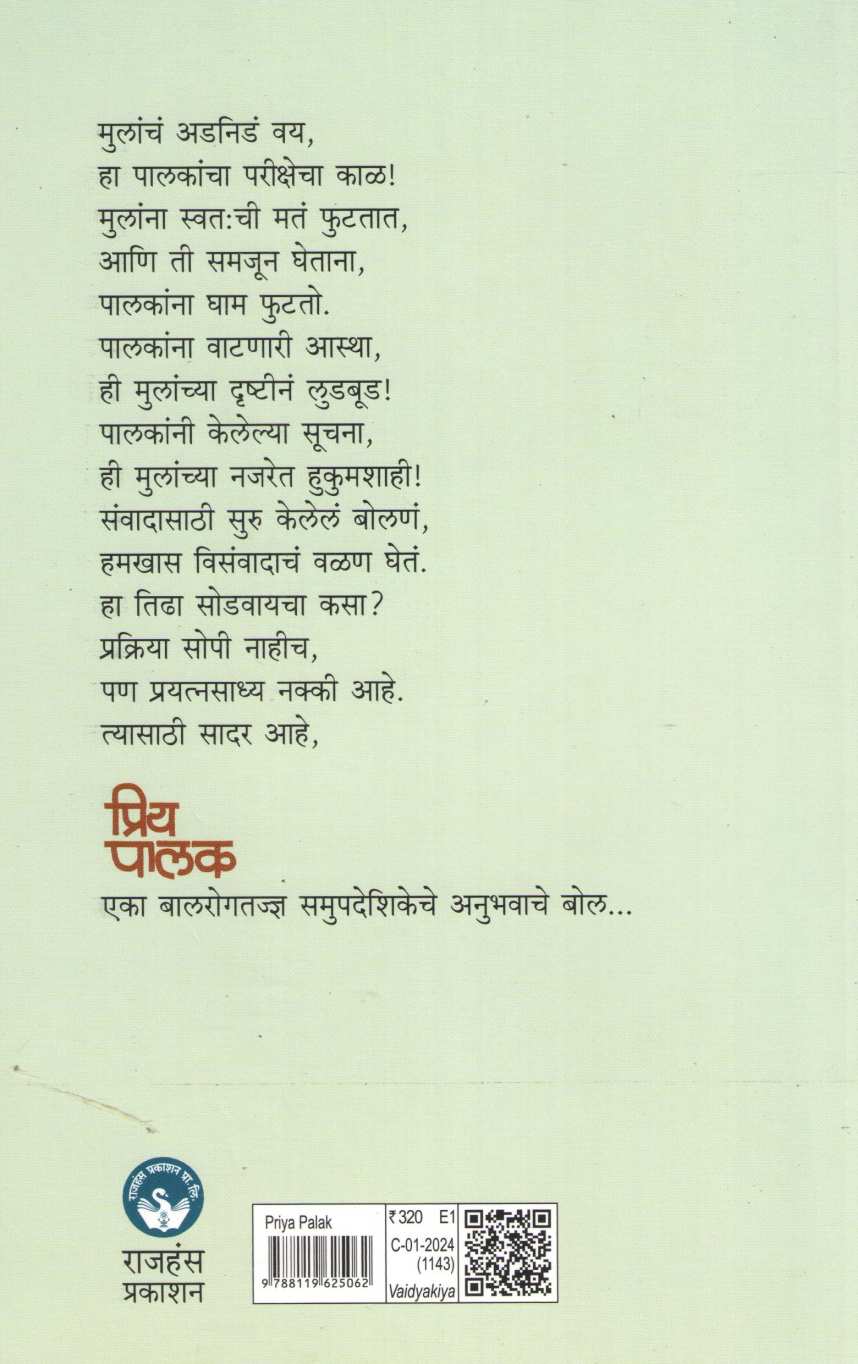 मुलांचं अडनिडं वय,
हा पालकांचा परीक्षेचा काळ!
मुलांना स्वतःची मतं फुटतात,
आणि ती समजून घेताना,
पालकांना घाम फुटतो.
पालकांना वाटणारी आस्था,
ही मुलांच्या दृष्टीनं लुडबूड!
पालकांनी केलेल्या सूचना,
ही मुलांच्या नजरेत हुकुमशाही!
संवादासाठी सुरु केलेलं बोलणं,
हमखास विसंवादाचं वळण घेतं.
हा तिढा सोडवायचा कसा?
प्रक्रिया सोपी नाहीच,
पण प्रयत्नसाध्य नक्की आहे.
त्यासाठी सादर आहे,
प्रिय
पालक
एका बालरोगतज्ज्ञ समुपदेशिकेचे अनुभवाचे बोल...
राजहंस प्रकाशन प्रा. लि.
राजहंस
प्रकाशन
Priya Palak
9 788119 625062
₹320 E1
C-01-2024
(1143)
Vaidyakiya